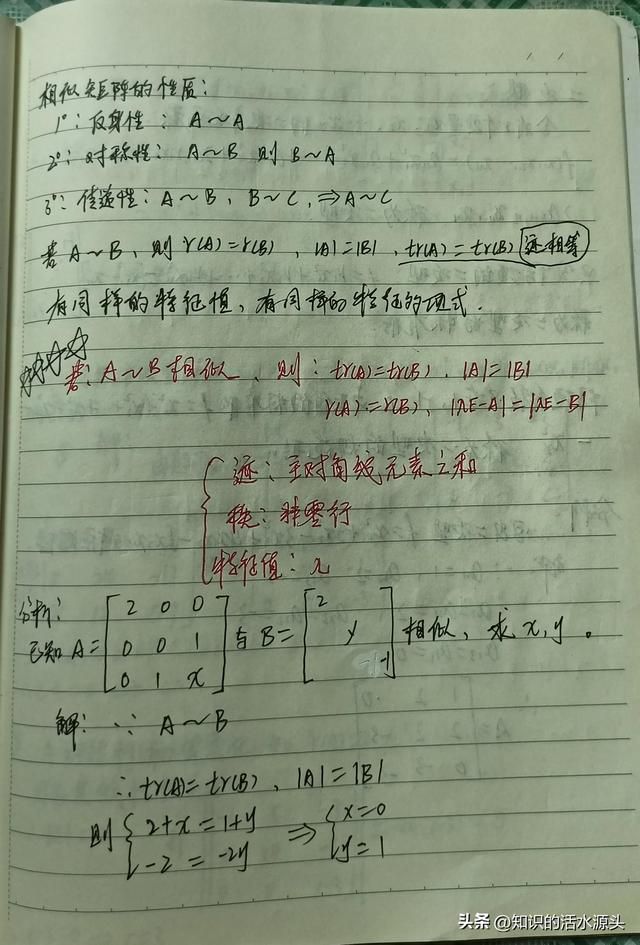 相似矩阵的性质:
1°: 反身性: A~A
2°: 对称性: A~B 则 B~A
3°: 传递性: A~B, B~C, ⇒ A~C
若 A~B, 则 r(A)=r(B), |A|=|B|, tr(A)=tr(B) 迹相等
有同样的特征值, 有同样的特征的项式.
☆☆☆ 若: A~B相似, 则: tr(A)=tr(B), |A|=|B|
r(A)=r(B), |λE-A|=|λE-B|
迹: 主对角线元素之和
秩: 非零行
特征值: λ
分析:
已知 A= [2 0 0
0 0 1
0 1 x] 与 B= [2
y
-1] 相似, 求x,y。
解: ∵ A~B
∴ tr(A)=tr(B), |A|=|B|
则 { 2+x=1+y ⇒ { x=0
-2=-2y y=1
头条 @知识的活水源头